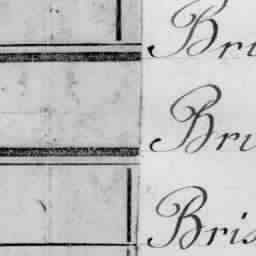 Bri
Bri
Bris